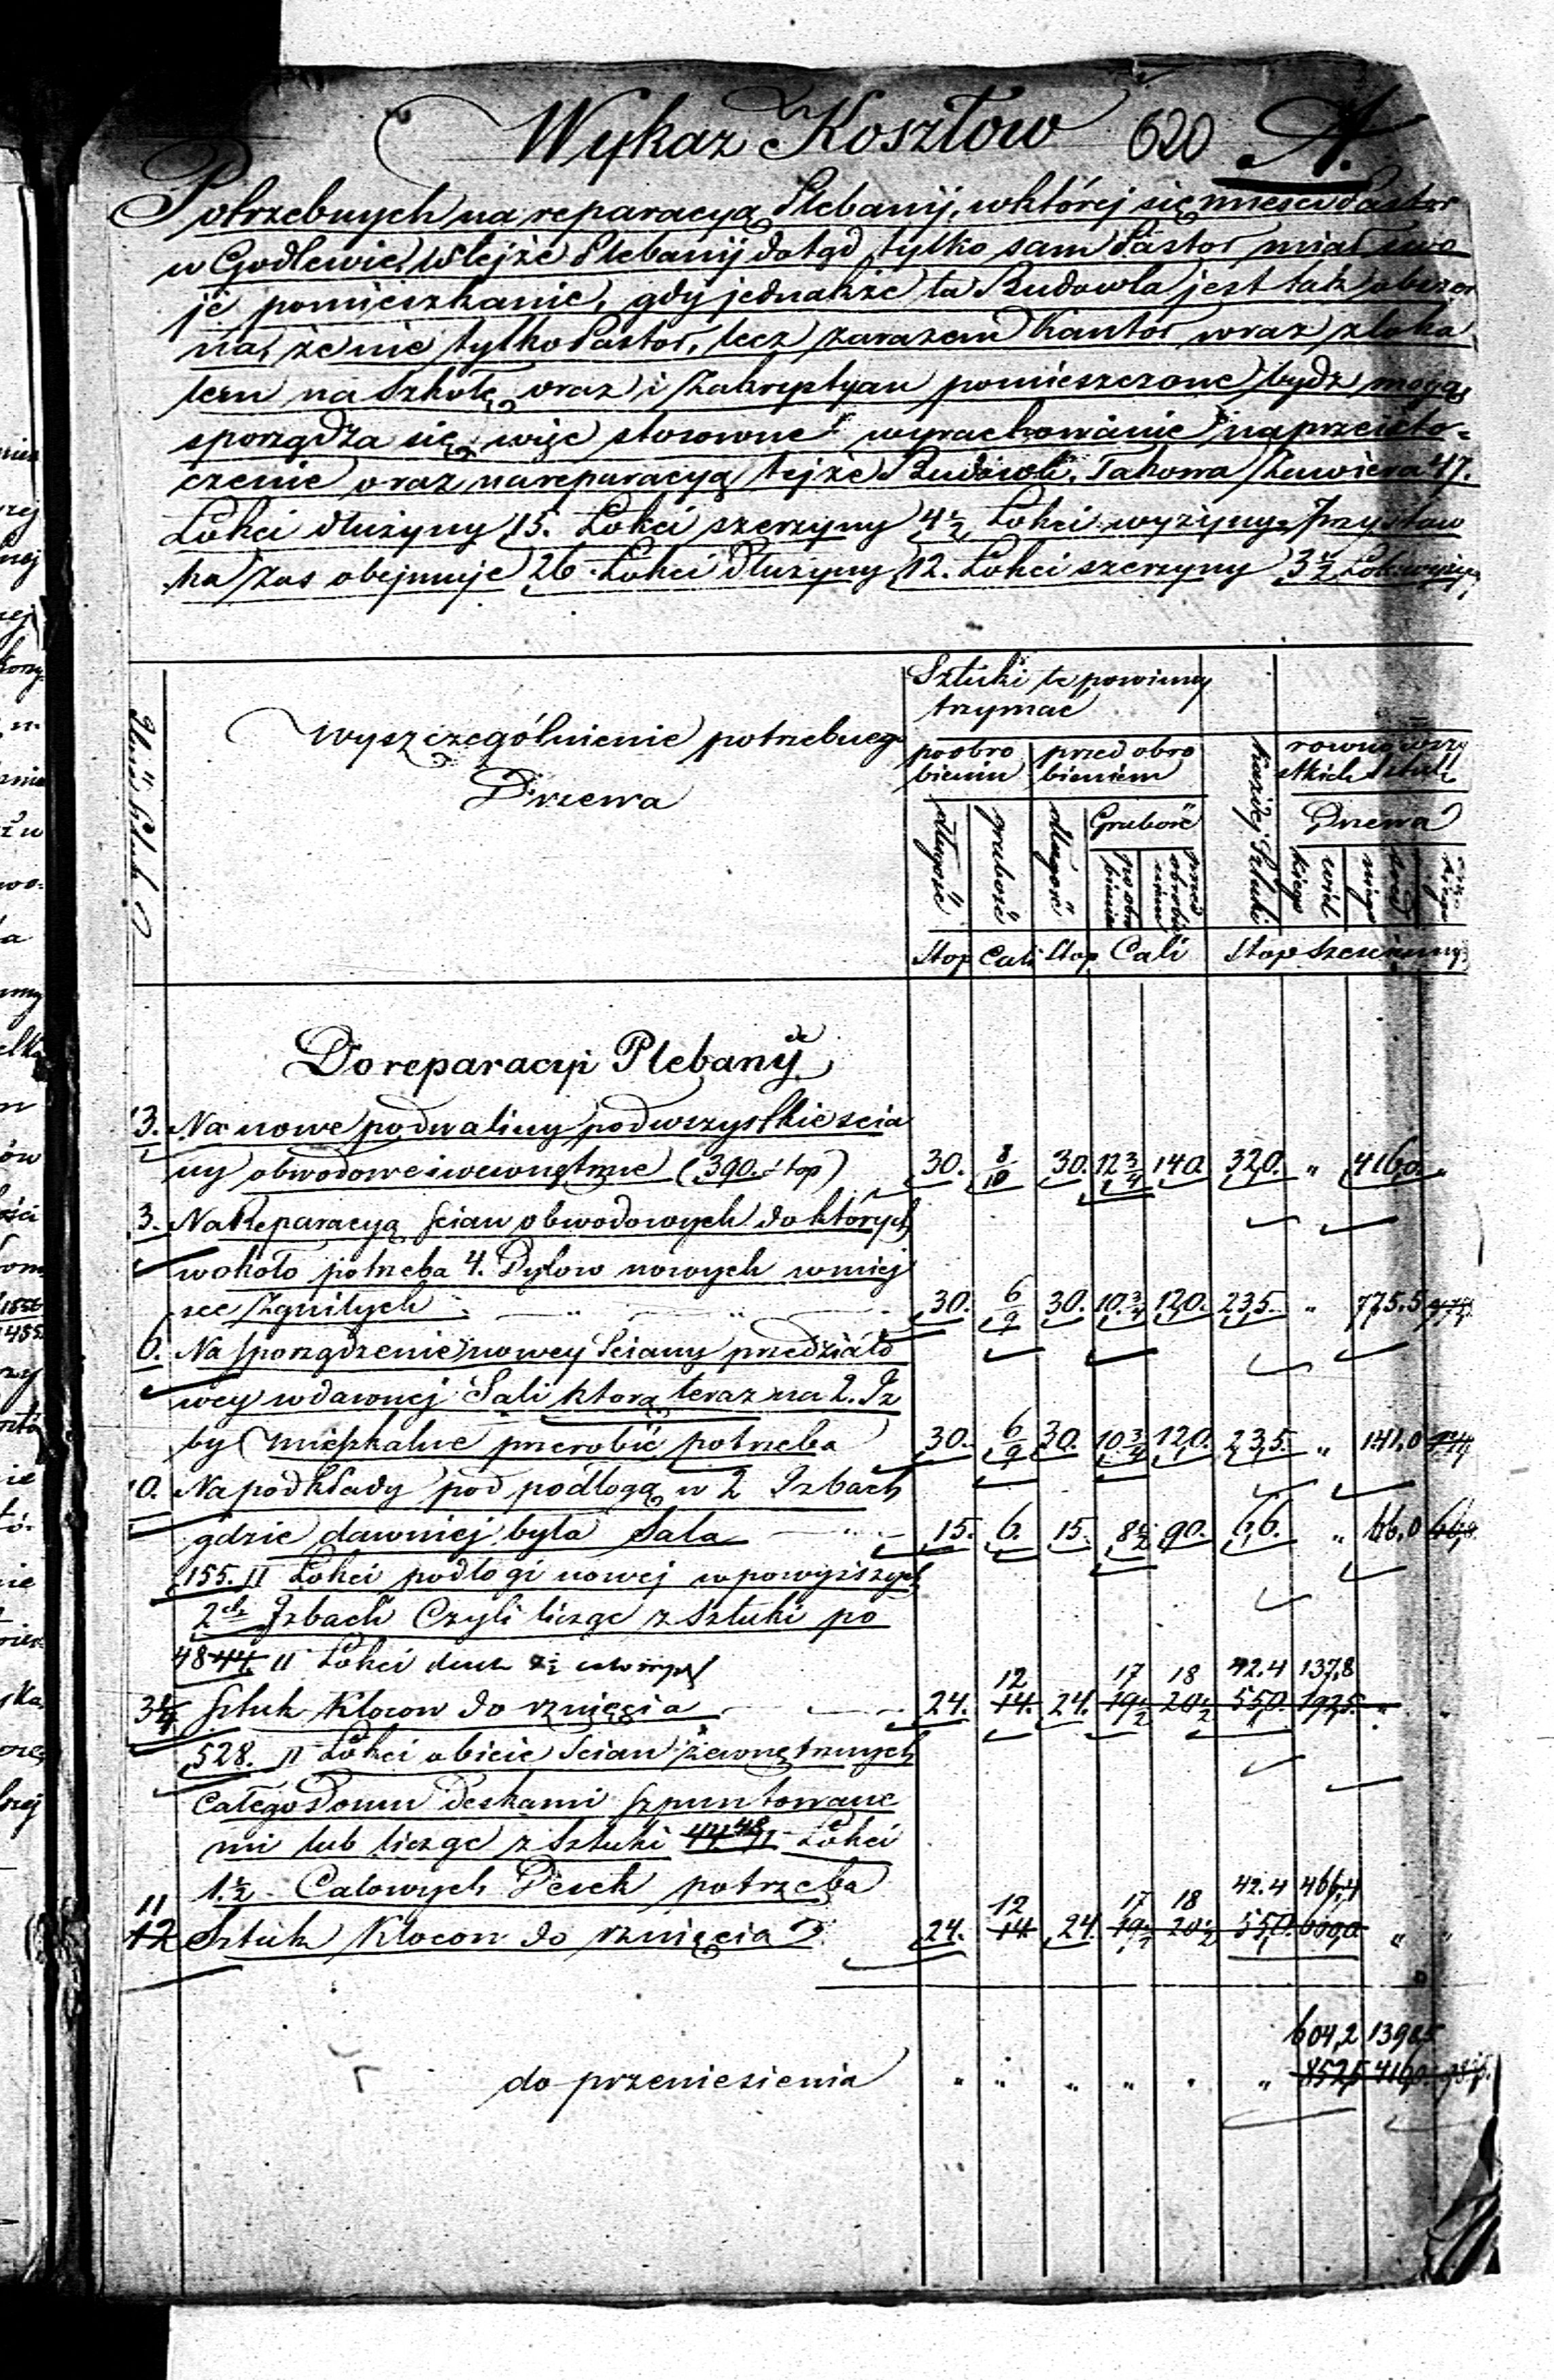 Wykaz Kosztow 620 A.
Potrzebnych na reparacyą Plebanij, wktórej się miesci Pastor
w Godlewie, Wtejże Plebanij dotąd tylko sam Pastor miał swo
je pomieszkanie, gdy jednakże ta Budowla jest tak obszer
na, że nie tylko Pastor, lecz zarazem Kantor wraz zloka
lem na Szkołę oraz i Zakrystyan pomieszczone bydz mogą,
sporządza się więc stosowne wyrachowanie naprzeisto-
czenie oraz nareparacyą tejże Budowli. Takowa Zawiera 47.
Łokci dłużyny 15. Łokci szerzyny 4½ Łokci wyżyny, Przystaw
ka zas obejmuje 26. Łokci Dłużyny 12. Łokci szerzyny 3½ Łok. wyży
Sztuki te powinny
trzymać
Wyszczególnienie potrzebnego
Drzewa
poobro
bieniu
przed obro
bieniem
rowno wszy
stkich Sztuk
każdej Sztuki
Drzewa
długość
grubość
długość
Grubość
po obro
bieniu
przed
obrobie
niem
wiel
kiego
sred
niego
Stop Cali Stop Cali Stop Szescienny
Do reparacyi Plebanij
13. Na nowe podwaliny pod wszystkie scia
ny obwodowe i wewnętrzne (390. stop) 30. 8/10 30. 12¾ 14.0 32,0. " 416,0. "
3. Na Reparacyą scian obwodowych do których
wokoło potrzeba 4. Dylow nowych wmiej
sce Zgnitych 30. 6/9 30. 10.¾ 12,0. 23,5. " 775.5
6. Na sporządzenie nowey Sciany przedziało
wey wdawnej Sali ktorą teraz na 2. Iz
by mieszkalne przerobić potrzeba 30. 6/9 30. 10¾ 12,0. 23,5. " 141,0
10. Na podkłady pod podłogą w 2 Izbach
gdzie dawniej była Sala 15. 6. 15. 8½ 90. 6,6. " 66,0 66,0.
155. □ Łokci podłogi nowej wpowyższych
2ch Izbach Czyli licząc z Sztuki po
48 44. □ Łokci
12 17 18 42.4 137,8
3¼ Sztuk Klocow do rznięcia 24. 14. 24. 19½ 20½ 55,0. 192,5. " "
528. □ Łokci obicie Scian zewnętrznych
Całego Domu Deskami szpuntowane
mi lub licząc z Sztuki 44 48 □ Łokci
1.½ Calowych Desek potrzeba
11 12 17 18 42.4 466,4
12 Sztuk Klocow do rznięcia 24. 14 24. 19½ 20½ 55,0. 660,0 " "
604,2 1398,5
do przeniesienia " " " " " " 852,5 416,0.